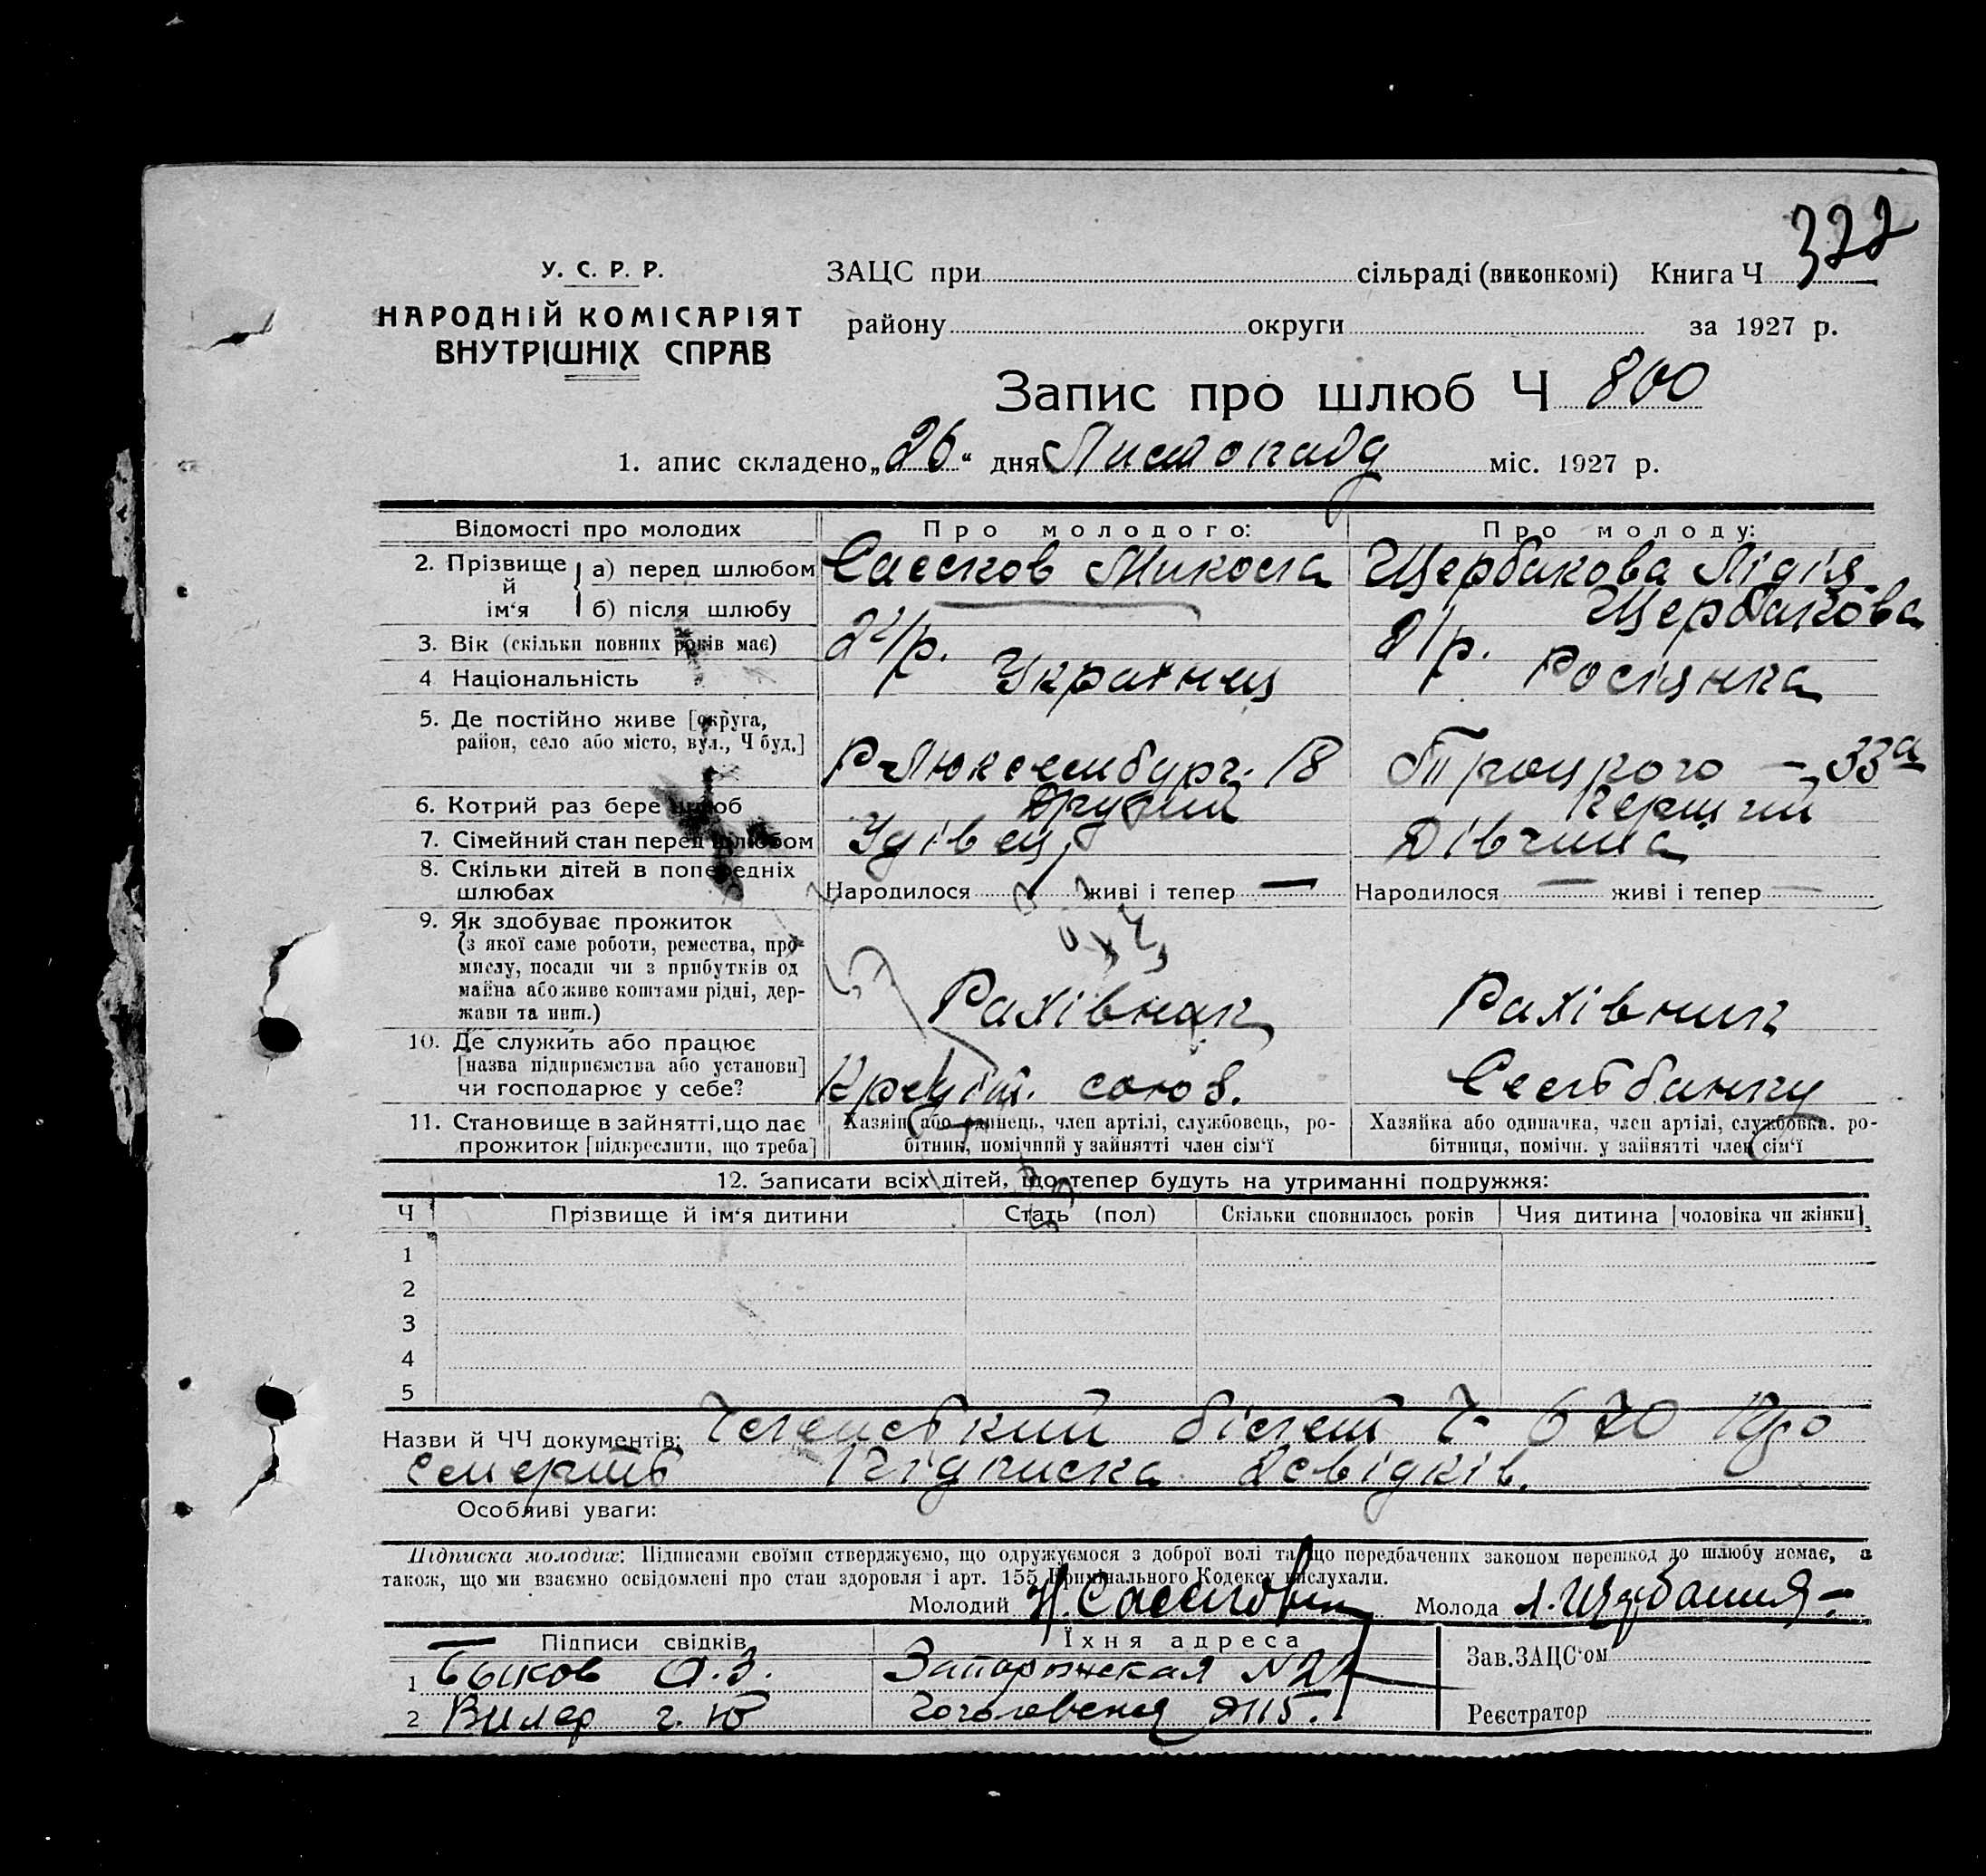 322
У. С. Р. Р.
НАРОДНІЙ КОМІСАРІЯТ
ВНУТРІШНІХ СПРАВ
ЗАЦС при сільраді (виконкомі) Книга Ч
району округи за 1927 р.
Запис про шлюб Ч 800
1. апис складено „26“ дня Листопаду міс. 1927 р.
Відомості про молодих Про молодого: Про молоду:
2. Прізвище й ім‘я а) перед шлюбом Микола Щербакова Лідія
б) після шлюбу Щербакова
3. Вік (скільки повних років має) р. 21 р.
4 Національність Українец Росіянка
5. Де постійно живе [округа,
район, село або місто, вул., Ч буд.] Р-Люксембург. 18 Троцкого – 33а
6. Котрий раз бере шлюб Другий Перший
7. Сімейний стан перед шлюбом Удівець Дівчина
8. Скільки дітей в попередніх
шлюбах Народилося живі і тепер — Народилося — живі і тепер —
9. Як здобуває прожиток
(з якої саме роботи, ремества, про-
мислу, посади чи з прибутків од
майна або живе коштами рідні, дер-
жави та инш.) Рахівник Рахівник
10. Де служить або працює
[назва підприємства або установи]
чи господарює у себе? Кредіт. союз. Сельбанку
11. Становище в зайнятті, що дає
прожиток [підкреслити, що треба]
Хазяїн або одинець, член артілі, службовець, ро-
бітник, помічний у зайнятті член сім‘ї
Хазяйка або одиначка, член артілі, службовка. ро-
бітниця, помічн. у зайнятті член сім‘ї
12. Записати всіх дітей, що тепер будуть на утриманні подружжя:
Ч Прізвище й ім‘я дитини Стать (пол) Скільки сповнилось років Чия дитина [чоловіка чи жінки]
1
2
3
4
5
Назви й ЧЧ документів: Членський білет Ч 670 Про
смерть Підписка Довідків.
Особливі уваги:
Підписка молодих: Підписами своїми стверджуємо, що одружуємося з доброї волі та що передбачених законом перешкод до шлюбу немає, а
також, що ми взаємно освідомлені про стан здоровля і арт. 155 Кримінального Кодексу вислухали.
Молодий Молода
Підписи свідків Їхня адреса
1 Быков Запорожская N 22
2 Вилер Г. Ю Гоголевская
Зав. ЗАЦС‘ом
Реєстратор